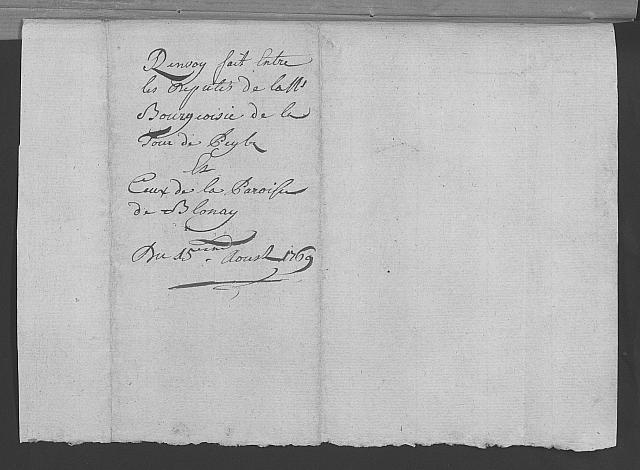 Renvoy fait Entre
les Deputés de la Ble
Bourgeoisie de la
Tour de Peylz
Et
Ceux de la Paroisse
de Blonay
Du 15 Aoust 1769